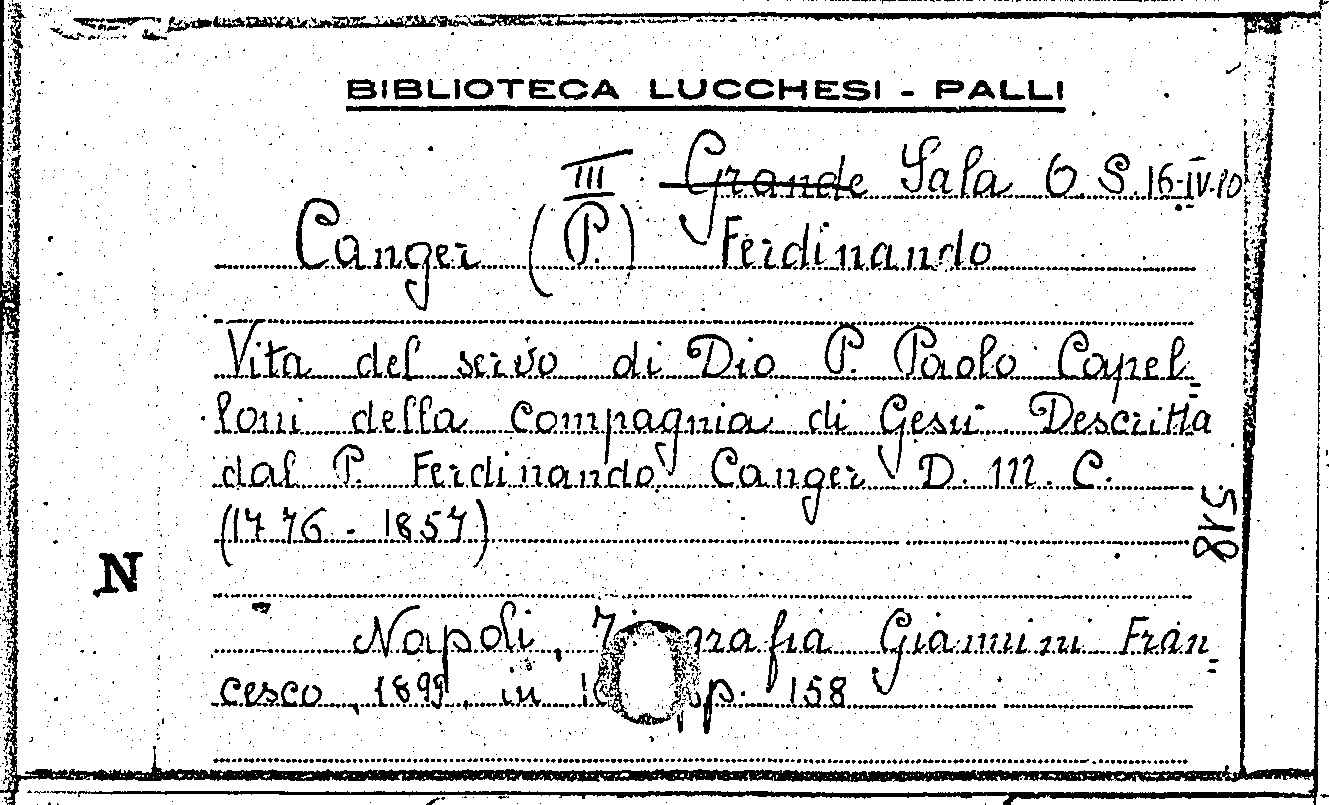 BIBLIOTECA LUCCHESI - PALLI
III Grande Sala O. S. 16-IV-10
Canger (P.) Ferdinando
Vita del servo di Dio P. Paolo Capel-
loni della Compagnia di Gesù Descritta
dal P. Ferdinando Canger D. M. C.
(1776 - 1857)
518
N
Napoli, Giannini Fran-
cesco, 1899, in pp. 158